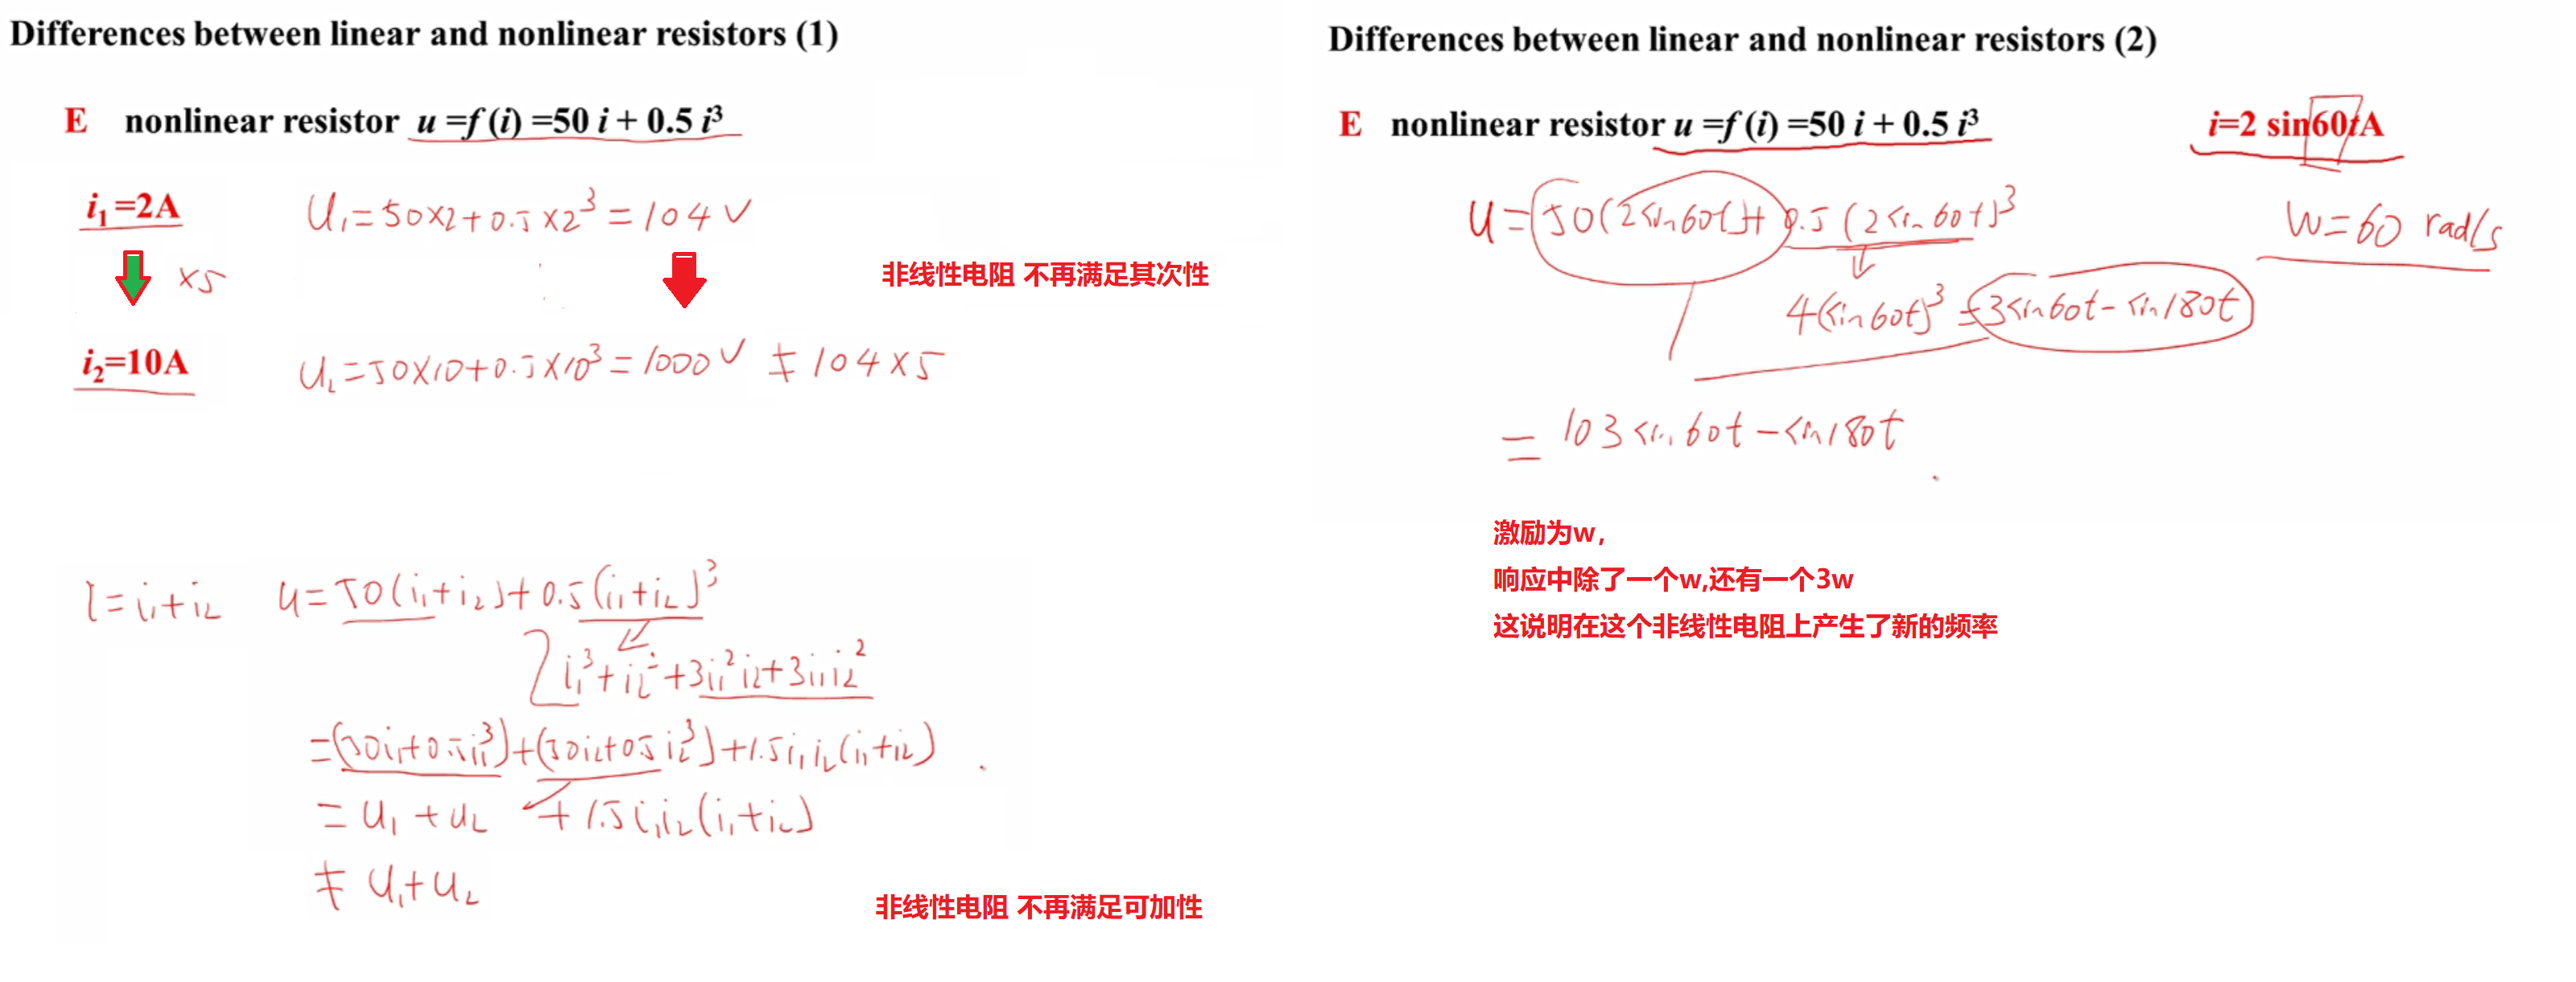 Differences between linear and nonlinear resistors (1)
E nonlinear resistor u =f (i) =50 i + 0.5 i³
i₁=2A
U₁=50×2+0.5×2³=104V
×5
非线性电阻 不再满足其次性
i₂=10A
U₂=50×10+0.5×10³=1000V ≠ 104×5
i=i₁+i₂ u=50(i₁+i₂)+0.5(i₁+i₂)³
i₁³+i₂³+3i₁²i₂+3i₁i₂²
=(50i₁+0.5i₁³)+(50i₂+0.5i₂³)+1.5i₁i₂(i₁+i₂)
=u₁+u₂ +1.5i₁i₂(i₁+i₂)
≠ u₁+u₂
非线性电阻 不再满足可加性
Differences between linear and nonlinear resistors (2)
E nonlinear resistor u =f (i) =50 i + 0.5 i³ i=2 sin60tA
u=50(2sin60t)+0.5(2sin60t)³
w=60 rad/s
4(sin60t)³=3sin60t-sin180t
=103sin60t-sin180t
激励为w，
响应中除了一个w,还有一个3w
这说明在这个非线性电阻上产生了新的频率